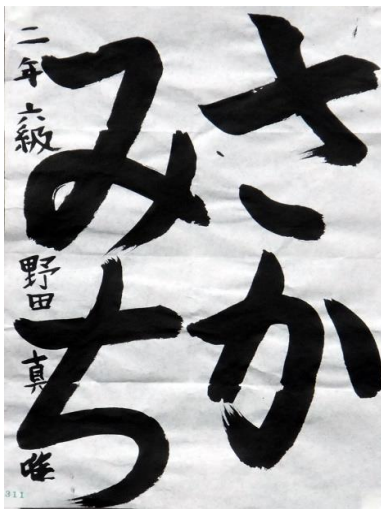 さか
みち
二年 六級 野田 真唯
311